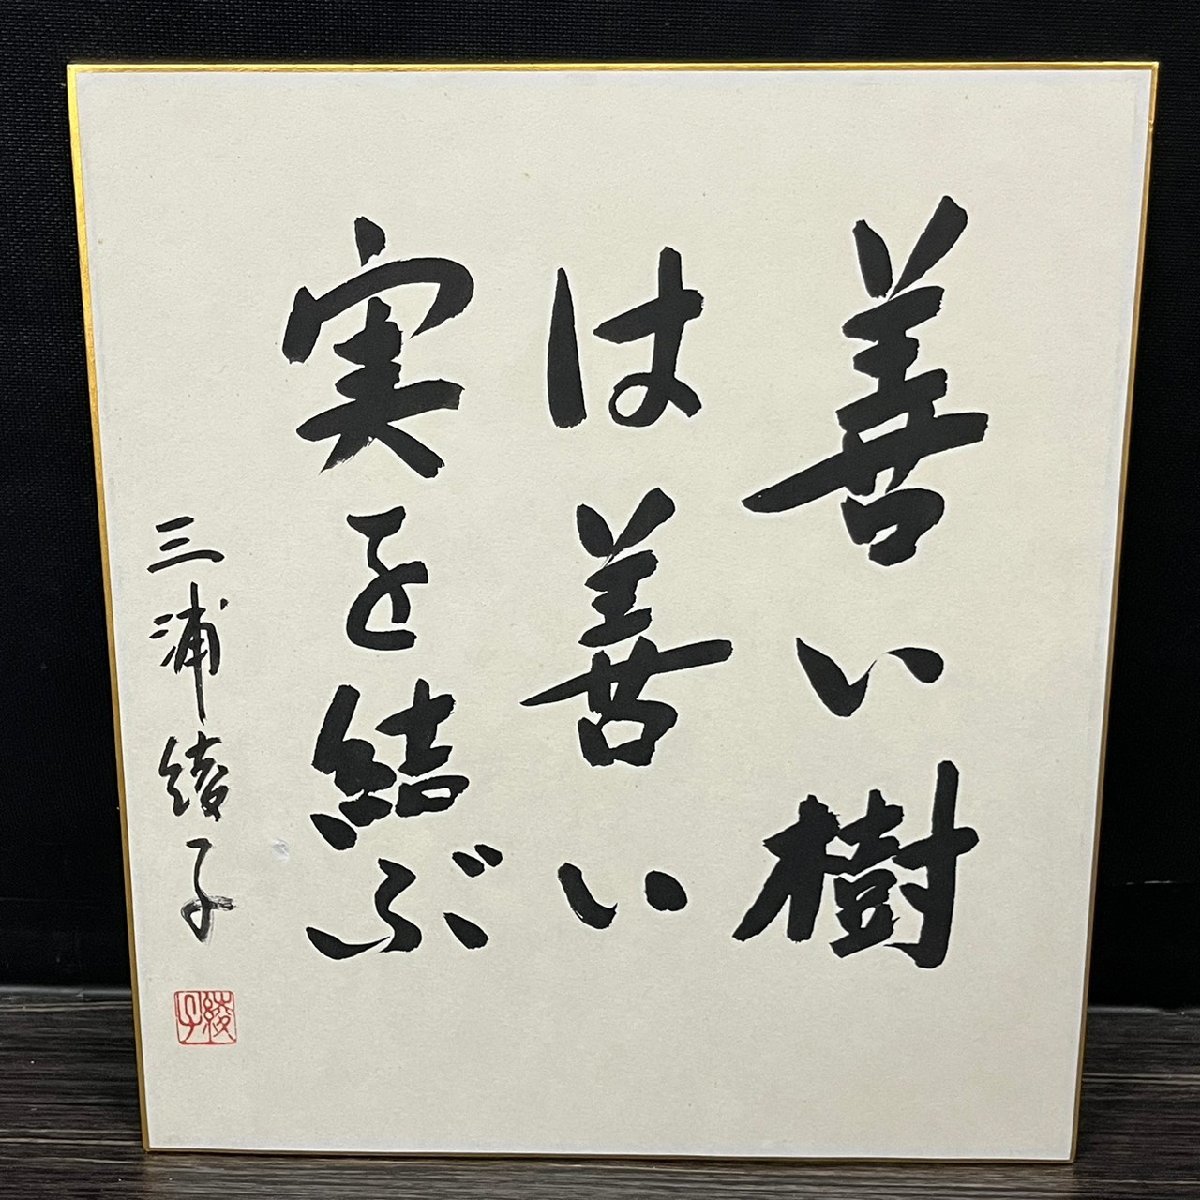 善い樹
は善い
実を結ぶ
三浦綾子
綾子